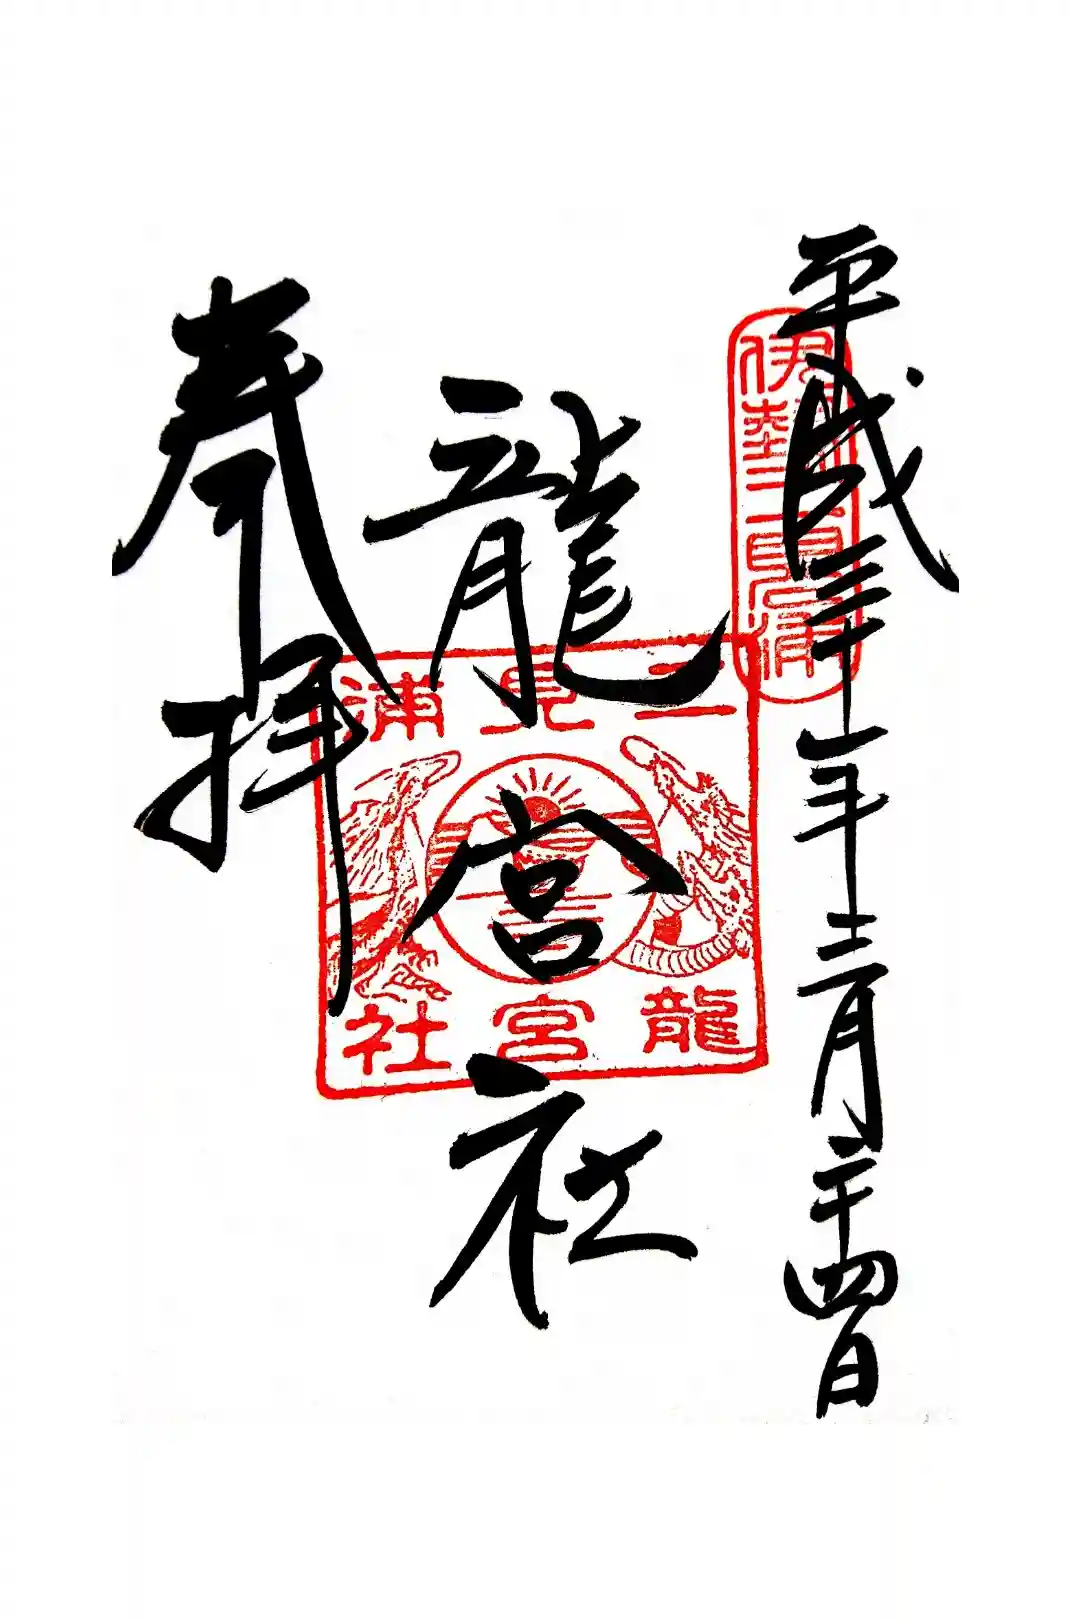 平成三十一年三月二十四日
龍宮社
奉拝
伊勢二見浦
二見浦
龍宮社